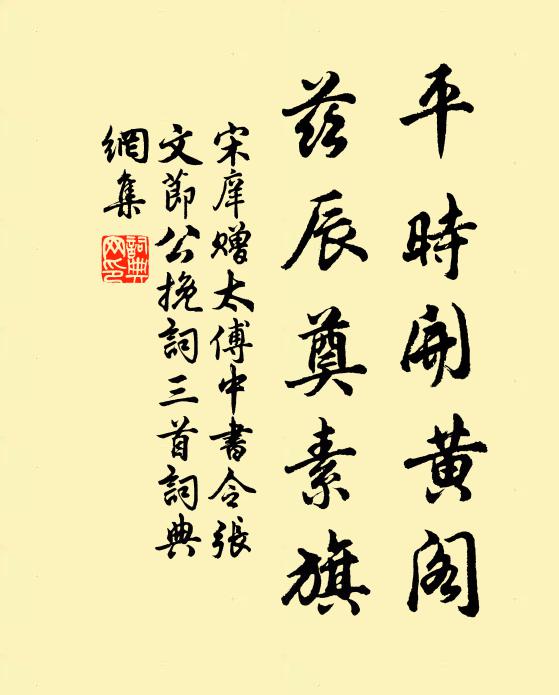 平時開黄閣
茲辰奠素旗
宋庠贈太傅中書令張
文節公挽詞三首詞典
網集
詞典網印